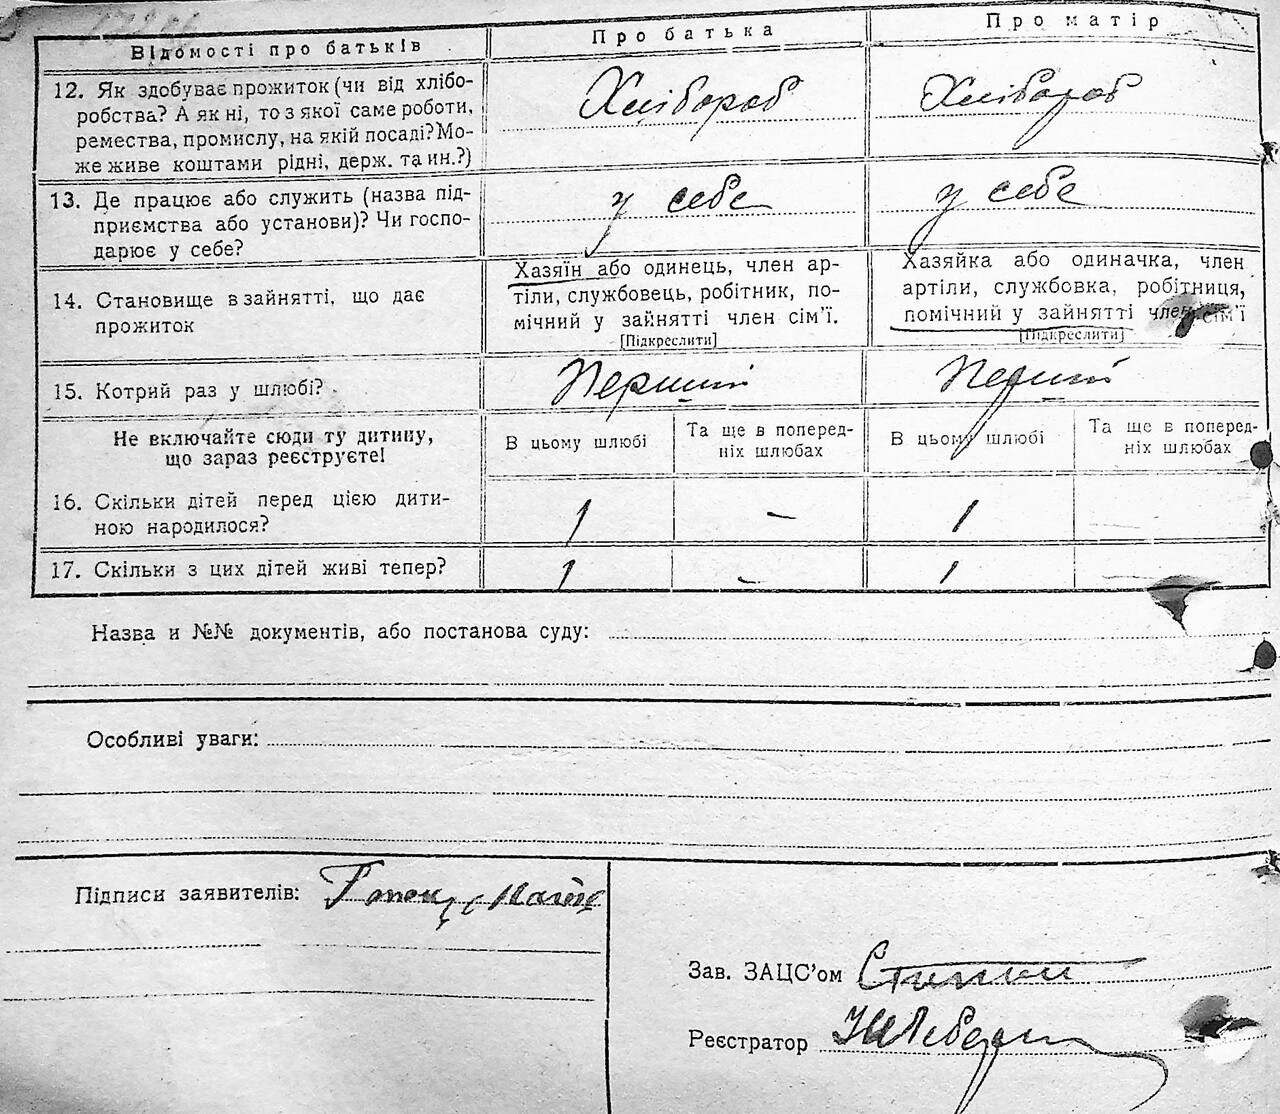 Відомості про батьків
Про батька
Про матір
12. Як здобуває прожиток (чи від хлібо-
робства? А як ні, то з якої саме роботи,
ремества, промислу, на якій посаді? Мо-
же живе коштами рідні, держ. та ин.?)
Хлібороб
Хлібороб
13. Де працює або служить (назва під-
приємства або установи)? Чи госпо-
дарює у себе?
у себе
у себе
14. Становище в зайнятті, що дає
прожиток
Хазяїн або одинець, член ар-
тіли, службовець, робітник, по-
мічний у зайнятті член сім'ї.
[Підкреслити]
Хазяйка або одиначка, член
артіли, службовка, робітниця,
помічний у зайнятті член сім'ї
[Підкреслити]
15. Котрий раз у шлюбі?
Перший
Перший
Не включайте сюди ту дитину,
що зараз реєструєте!
В цьому шлюбі
Та ще в поперед-
ніх шлюбах
В цьому шлюбі
Та ще в поперед-
ніх шлюбах
16. Скільки дітей перед цією дити-
ною народилося?
1
-
1
17. Скільки з цих дітей живі тепер?
1
-
1
Назва и №№ документів, або постанова суду:
Особливі уваги:
Підписи заявителів:
Зав. ЗАЦС'ом
Реєстратор